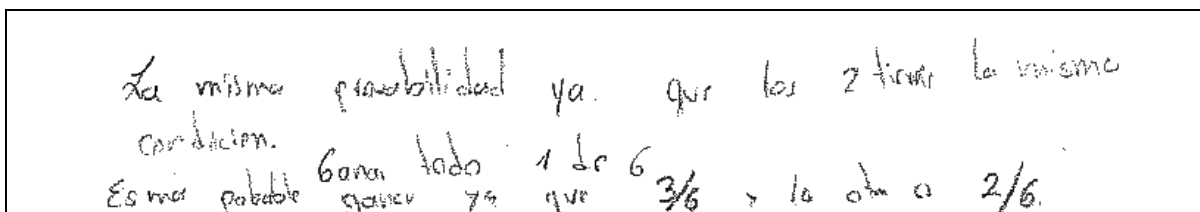 La misma provabilidad ya. que los 2 tienen la misma
condicion.
Ganar todo 1 de 6
Es más probable ganar ya que 3/6 y la otra a 2/6.